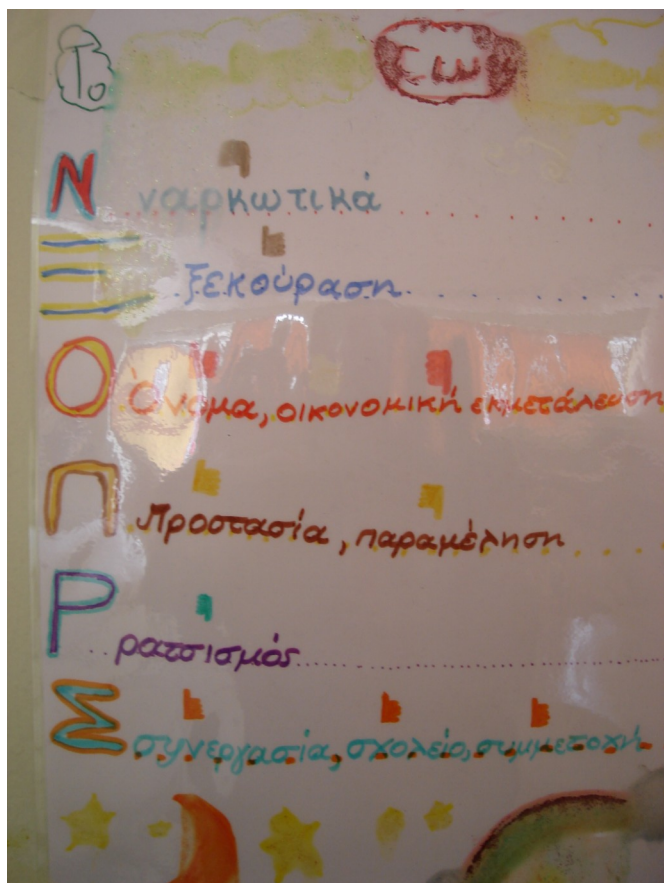 Το Σω
Ν ναρκωτικά
Ξ ξεκούραση
Ο Όνομα, οικονομική εκμετάλευση
Π Προστασία, παραμέληση
Ρ ρατσισμός
Σ συνεργασία, σχολείο, συμμετοχή